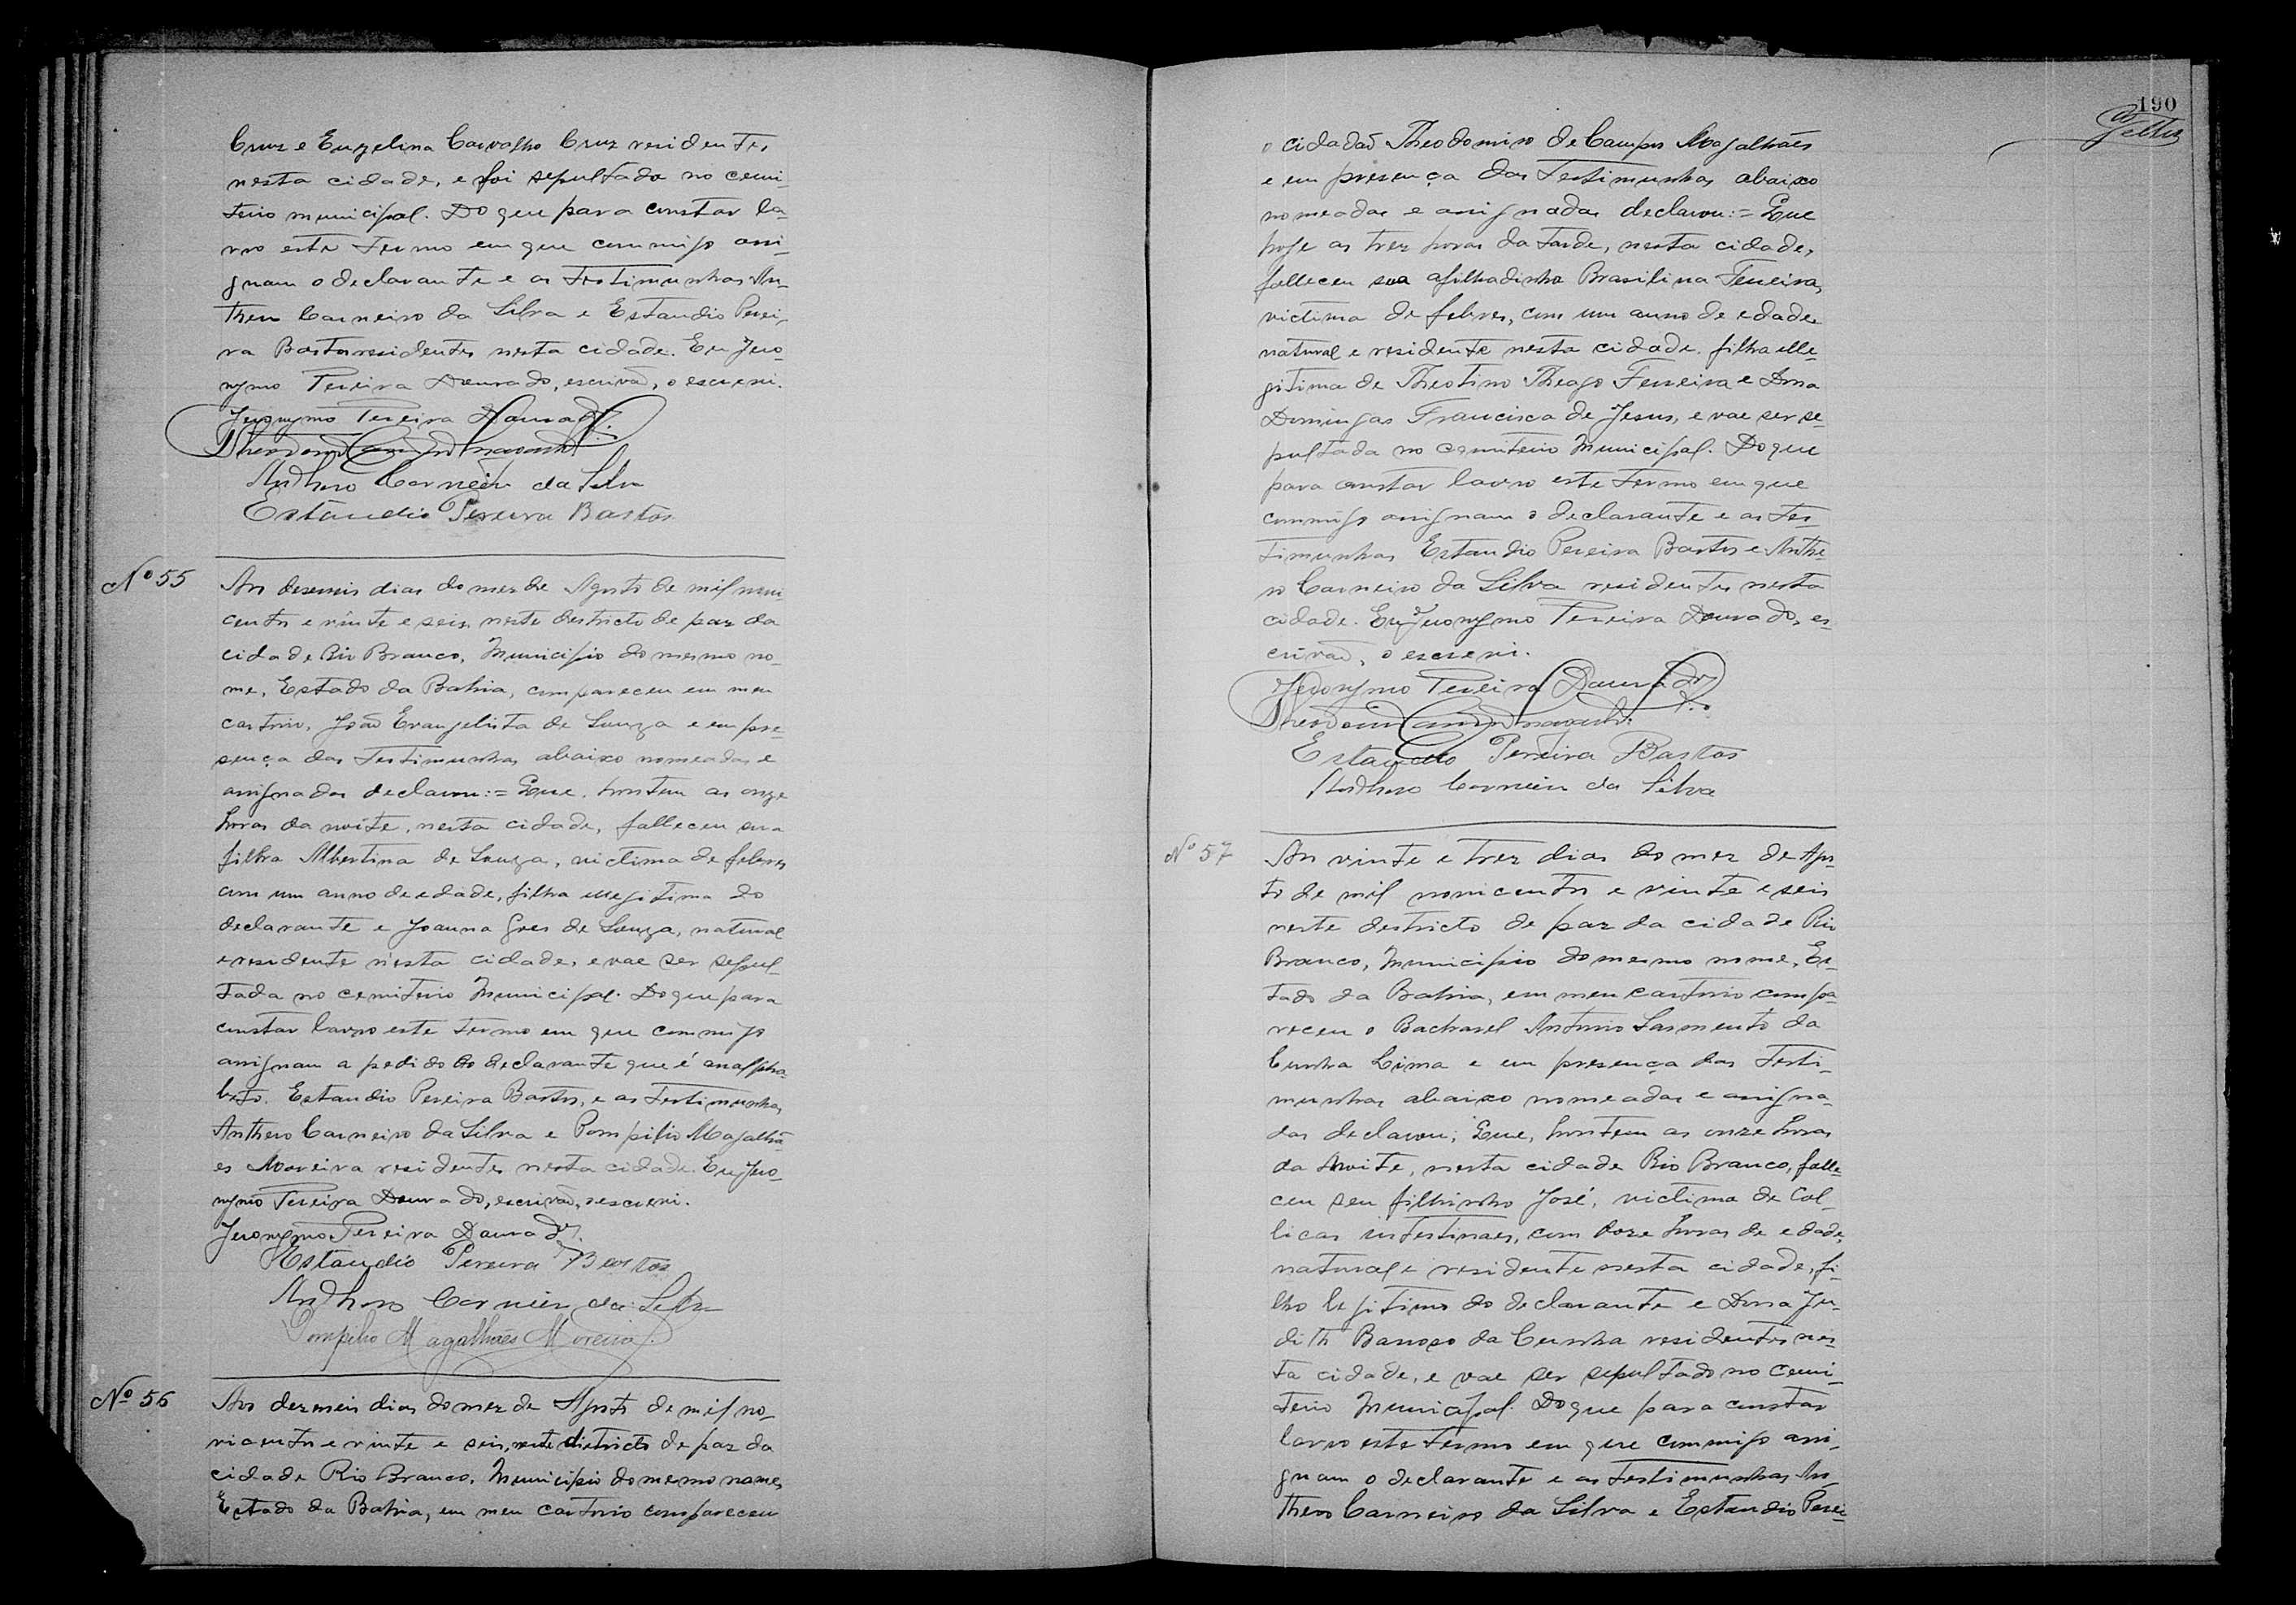 Cruz e Eugelina Carvalho Cruz residentes
nesta cidade, e foi sepultado no cemi-
terio municipal. Do que para constar la-
vro este termo em que commigo assi-
gnam o declarante e as testimunhas An-
thero Carneiro da Silva e Estandio Perei-
ra Bastos residentes nesta cidade. Eu Jero-
nymo Pereira Dourado, escrivaõ, o escrevi.
Jeronymo Pereira Dourado
Anthero Carneiro da Silva
Estandio Pereira Bastos
Nº 55
Aos deseseis dias do mez de Agosto de mil novi-
centos e vinte e seis neste destricto de paz da
cidade Rio Branco, Municipio do mesmo no-
me, Estado da Bahia, compareceu em meu
cartorio, João Evangelista de Souza e em pre-
sença das testimunhas abaixo nomeadas e
assignadas declarou:= Que, hontem as onze
horas da noite, nesta cidade, falleceu sua
filha Albertina de Souza, victima de febres
com um anno de edade, filha illegitima do
declarante e Joanna Goes de Souza, natural
e residente nesta cidade, e vae ser sepul-
tada no cemiterio Municipal. Do que para
constar lavro este termo em que commigo
assignam a pedido do declarante que é analpha-
beto. Estandio Pereira Bastos, e as testimunhas
Anthero Carneiro da Silva e Pompilio Magalhã-
es Moreira residentes nesta cidade. Eu Jero-
nymo Pereira Dourado, escrivaõ, o escrevi.
Jeronymo Pereira Dourado
Estandio Pereira Bastos
Anthero Carneiro da Silva
Pompilio Magalhães Moreira
Nº 56
Aos dezeseis dias do mez de Agosto de mil no-
vicentos e vinte e seis, neste districto de paz da
cidade Rio Branco, Municipio do mesmo nome,
Estado da Bahia, em meu cartorio compareceu
190
o cidadaõ Theodomiro de Campos Magalhães
e em presença das testimunhas abaixo
nomeadas e assignadas declarou:= Que
hoje as trez horas da tarde, nesta cidade,
falleceu sua afilhadinha Brasilina Ferreira,
victima de febres, com um anno de edade
natural e residente nesta cidade. filha ille-
gitima de Theotino Theago Ferreira e Dona
Domingas Francisca de Jesus, e vae ser se-
pultada no cemiterio Municipal. Do que
para constar lavro este termo em que
commigo assignam o declarante e as tes-
timunhas Estandio Pereira Bastos e Anthe
ro Carneiro da Silva residentes nesta
cidade. Eu Jeronymo Pereira Dourado, es-
crivaõ, o escrevi.
Jeronymo Pereira Dourado
Estandio Pereira Bastos
Anthero Carneiro da Silva
Nº 57
Aos vinte e trez dias do mez de Agos-
to de mil novicentos e vinte e seis
neste destricto de paz da cidade Rio
Branco, Municipio do mesmo nome, Es-
tado da Bahia, em meu cartorio compa-
receu o Bacharel Antonio Sarmento da
Cunha Lima e em presença das testi-
munhas abaixo nomeadas e assigna-
das declarou; Que, hontem as onze horas
da Noite, nesta cidade Rio Branco, falle-
ceu seu filhinho José, victima de Col-
licas intestinaes, com doze horas de edade,
natural e residente nesta cidade, fi-
lho legitimo do declarante e Dona Ju-
dith Barroso da Cunha residentes nes-
ta cidade, e vae ser sepultado no Cemi-
terio Municipal. Do que para constar
lavro este termo em que commigo assi-
gnam o declarante e as testimunhas An-
thero Carneiro da Silva e Estandio Perei-